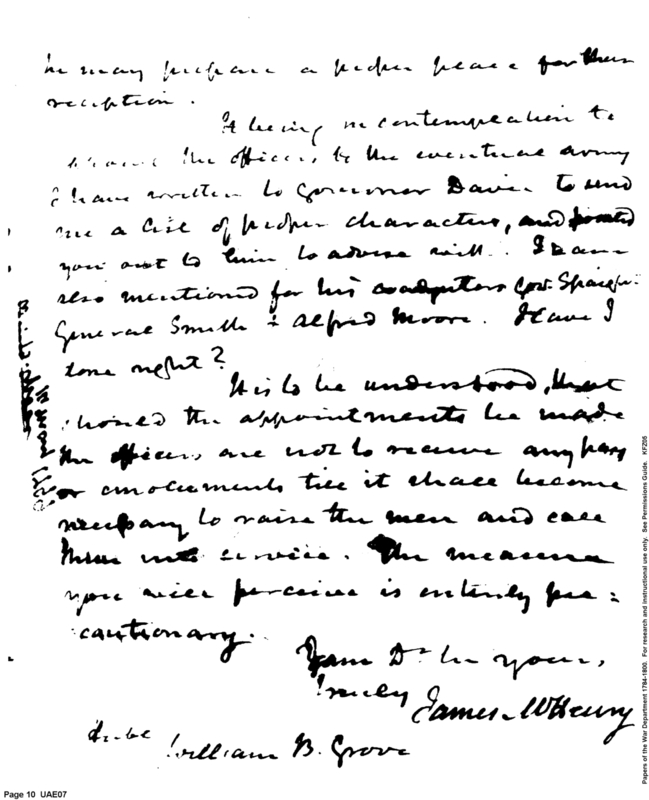 he may prepare a proper place for their
reception.
It being in contemplation to
the officers to the eventual army
I have written to Governor Davie to send
me a list of proper characters, and pointed
you out to him to advise with. I have
also mentioned for his coadjutors Gov. Spaigh-
General Smith & Alfred Moore. Have I
done right?
It is to be understood, that
should the appointments be made
the officers are not to receive any pay
or emoluments till it shall become
necessary to raise the men and call
them into service. The measure
you will perceive is entirely pre=
cautionary.
I am Dr Sir yours,
truly
James McHenry
William B. Grove
Page 10 UAE07
Papers of the War Department 1784-1800. For research and instructional use only. See Permissions Guide. KFZ05